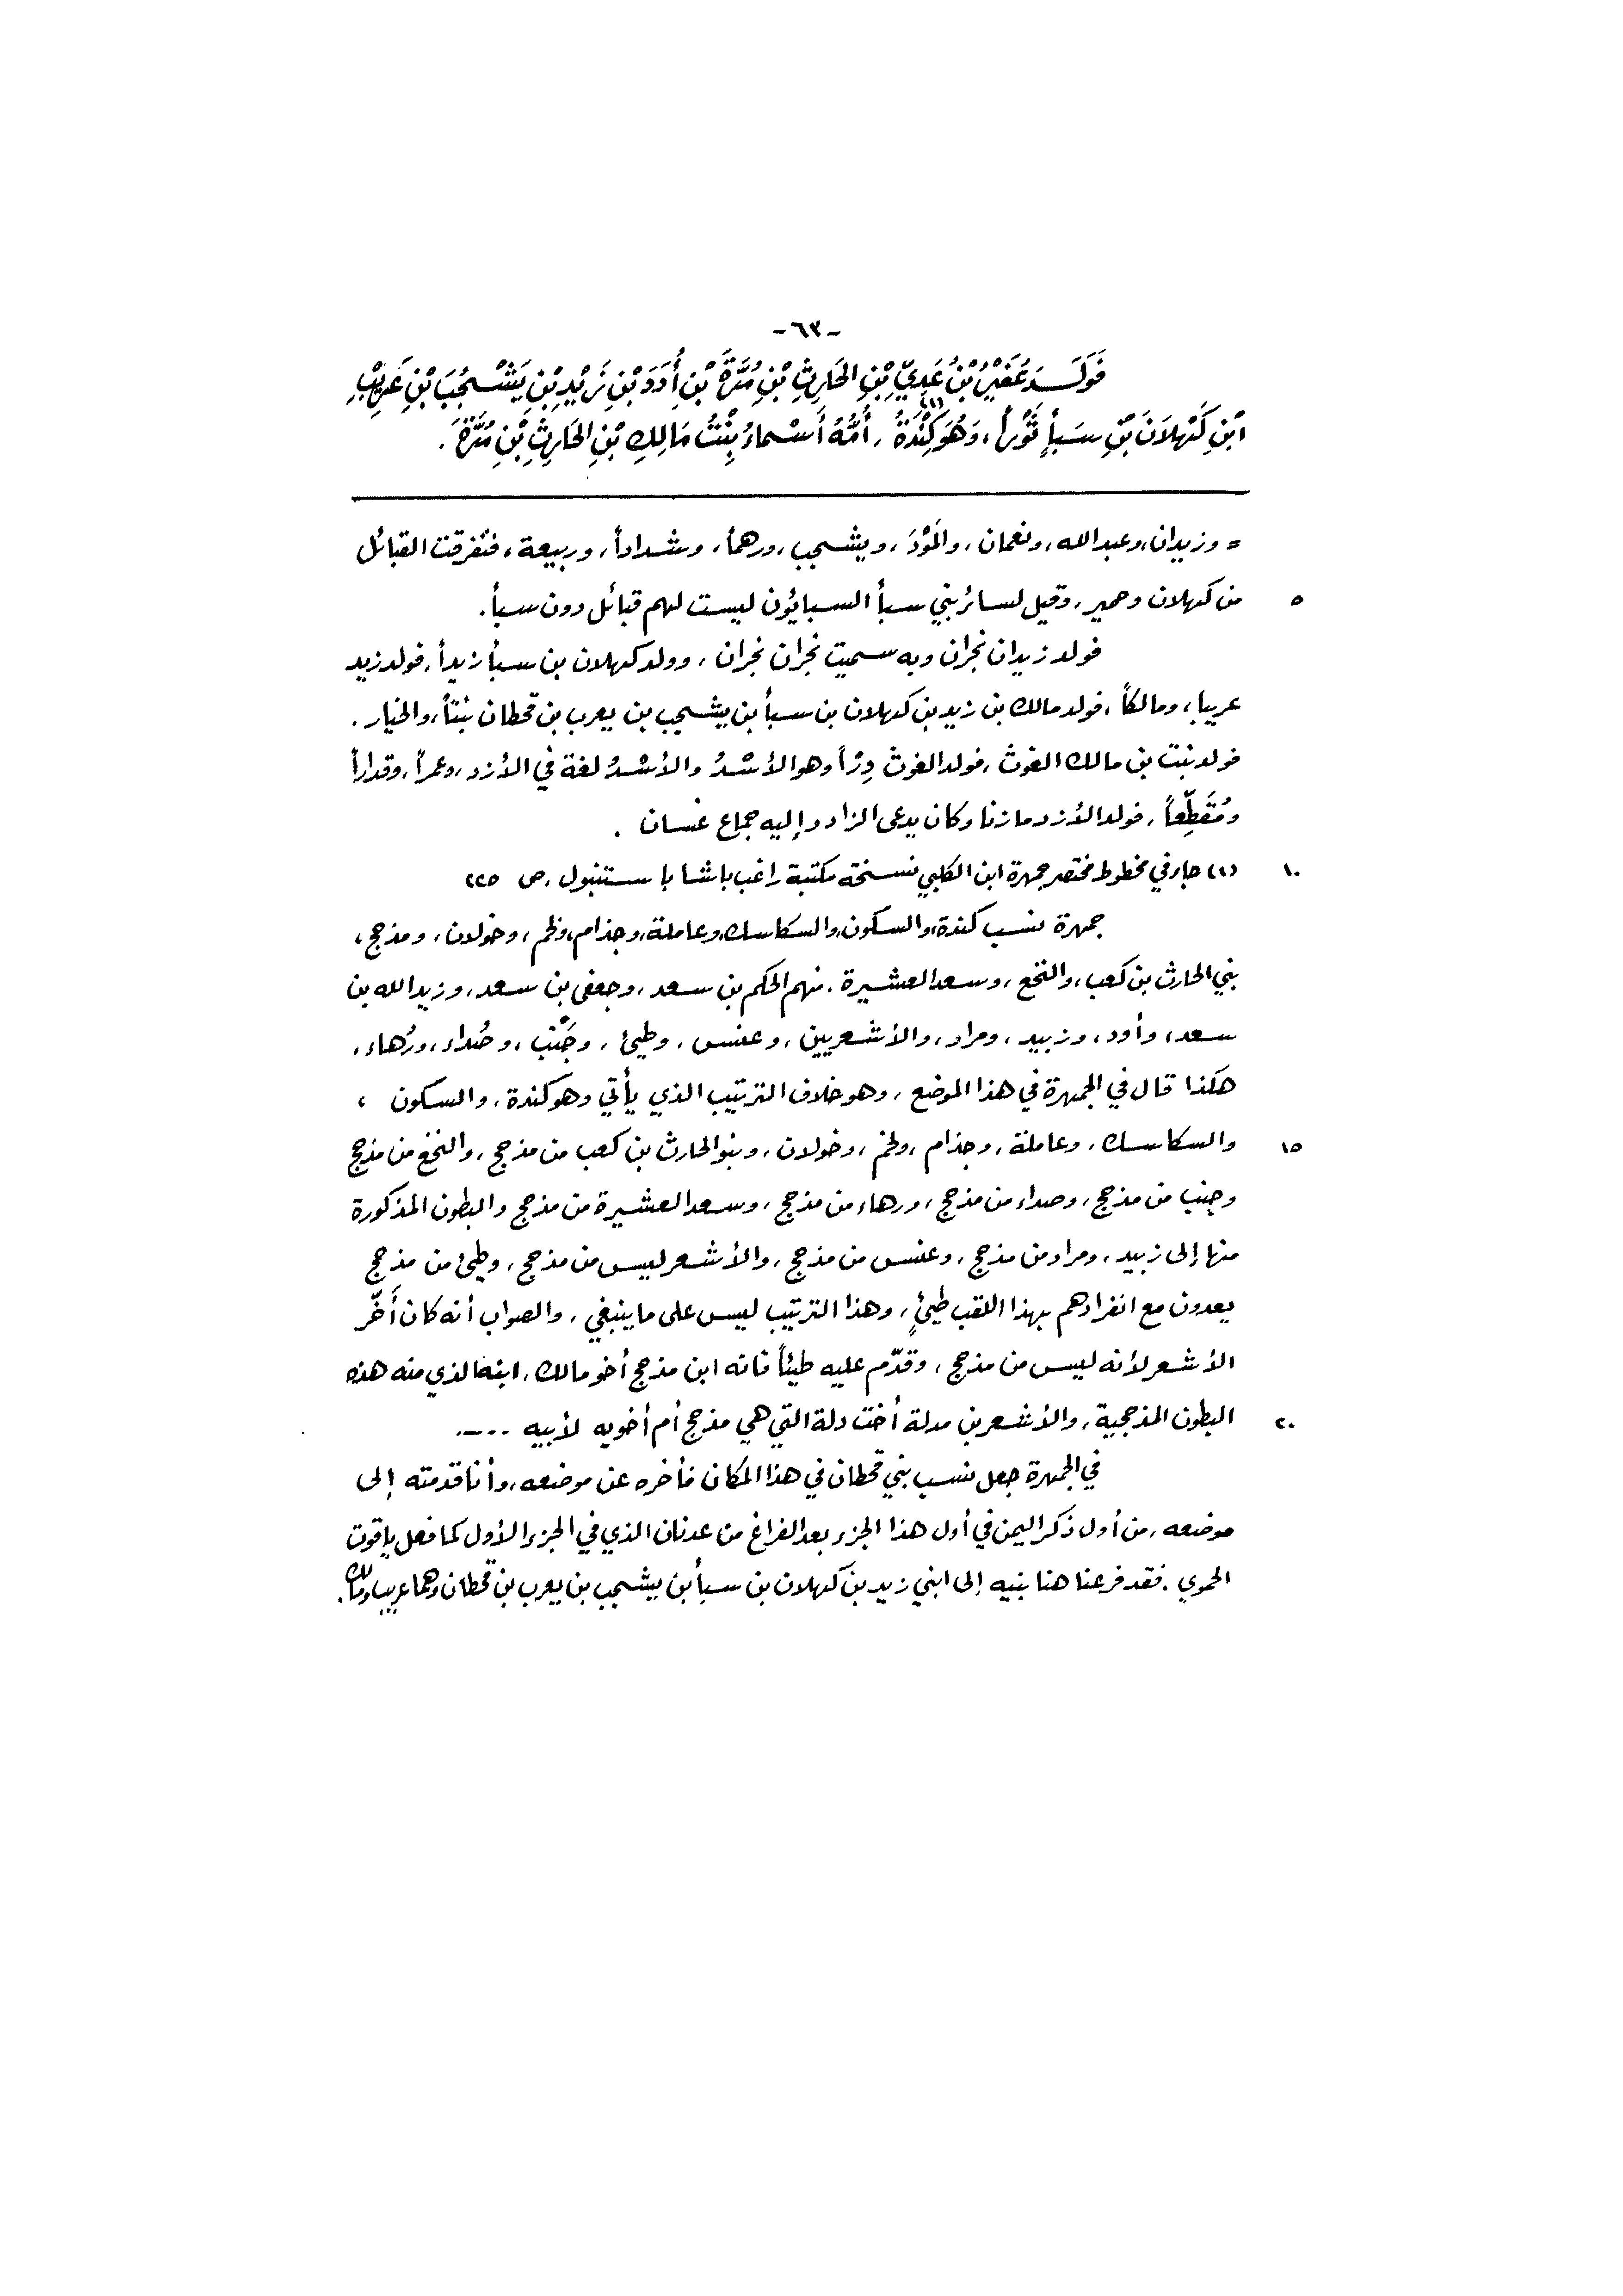 -٦٣-
فَوَلَدَ عُفَيْرُ بْنُ عَدِيِّ بْنِ الحَارِثِ بْنِ مُرَّةَ بْنِ أُدَدَ بْنِ زَيْدِ بْنِ يَشْجُبَ بْنِ عَرِيْبِ
ابْنِ كَهْلَانَ بْنِ سَبَأٍ ثَوْراً، وَهُوَ كِنْدَةُ(١)، أُمُّهُ أَسْمَاءُ بِنْتُ مَالِكِ بْنِ الحَارِثِ بْنِ مُرَّةَ.
= وزيدان، وعبدالله، ونعمان، والمَوْدَ، ويشجب، ورهماً، وشداداً، وربيعة، فتفرقت القبائل
٥ من كهلان وحمير، وقيل لسائر بني سبأ السبايُون ليست لهم قبائل دون سبأ.
فولد زيدان نجران وبه سميت نجران نجران، وولد كهلان بن سبأ زيداً، فولد زيد
عريبا، ومالكاً، فولد مالك بن زيد بن كهلان بن سبأ بن يشجب بن يعرب بن قحطان نبتاً، والخيار.
فولد نبت بن مالك الغوث، فولد الغوث دِرْاً وهو الأسْدُ والأسْدُ لغة في الأزد، وعمراً، وقداراً
ومُقَطِّعاً، فولد الأزد مازنا وكان يدعى الزاد وإليه جماع غسان .
١٠ (١) جاء في مخطوط مختصر جمهرة ابن الكلبي نسخة مكتبة راغب باشا باستنبول، ص ٢٢٥
جمهرة نسب كندة، والسكون، والسكاسك، وعاملة، وجذام، ولخم، وخولان، ومذحج،
بني الحارث بن كعب، والنخع، وسعد العشيرة. منهم الحكم بن سعد، وجعفى بن سعد، وزيد الله بن
سعد، وأود، وزبيد، ومراد، والأشعريين، وعنس، وطيئ، وجَنْب، وصُداء، ورُهاء،
هكذا قال في الجمهرة في هذا الموضع، وهو خلاف الترتيب الذي يأتي وهو كندة، والسكون ،
١٥ والسكاسك، وعاملة، وجذام، ولخم، وخولان، وبنو الحارث بن كعب من مذحج، والنخع من مذحج
وجنب من مذحج، وصداء من مذحج، ورهاء من مذحج، وسعد العشيرة من مذحج والبطون المذكورة
منها إلى زبيد، ومراد من مذحج، وعنس من مذحج، والأشعر ليس من مذحج، وطيئ من مذحج
يعدون مع انفرادهم بهذا اللقب طيئٍ، وهذا الترتيب ليس على ما ينبغي، والصواب أنه كان أَخّر
الأشعر لأنه ليس من مذحج، وقدّم عليه طيئاً فانه ابن مذحج أخو مالك، ابنها الذي منه هذه
٢٠ البطون المذحجية، والأشعر بن مدلة أخت دلة التي هي مذحج أم أخويه لأبيه ....
في الجمهرة جعل نسب بني قحطان في هذا المكان فأخره عن موضعه، وأنا قدمته إلى
موضعه، من أول ذكر اليمن في أول هذا الجزء بعد الفراغ من عدنان الذي في الجزء الأول كما فعل ياقوت
الحموي. فقد فرعنا هنا بنيه إلى ابني زيد بن كهلان بن سبأ بن يشجب بن يعرب بن قحطان وهما عريب ومالك.